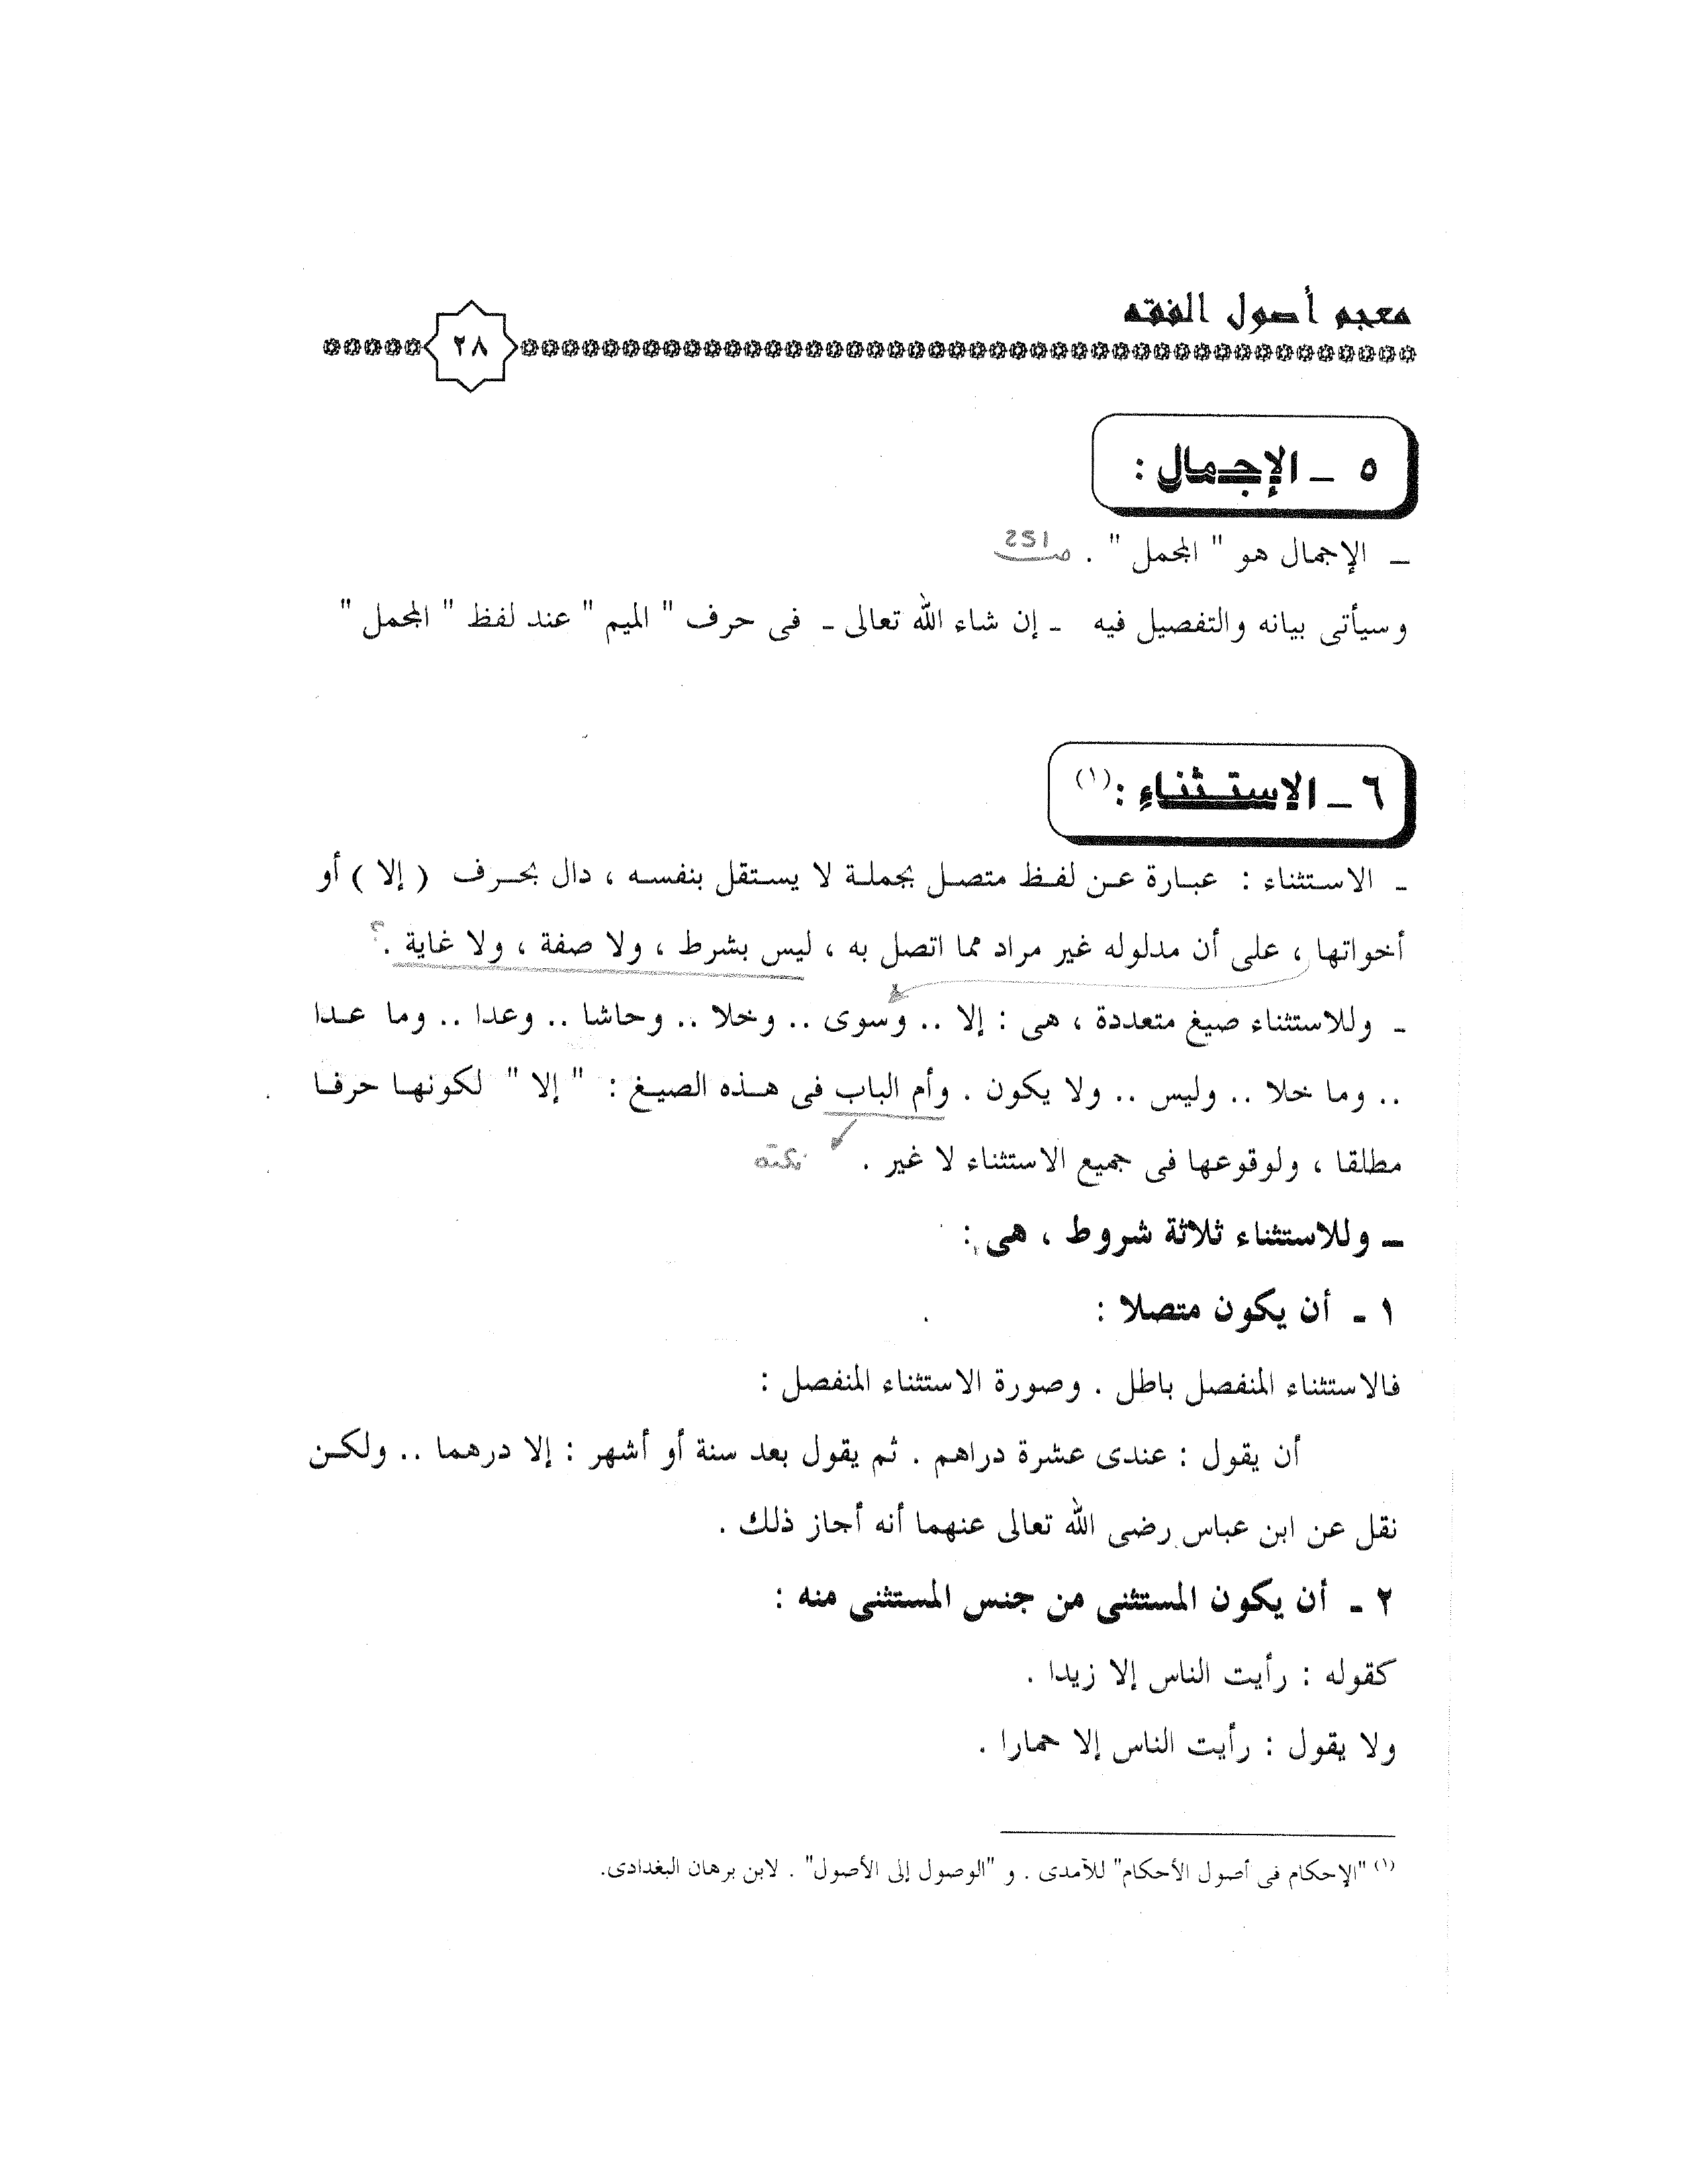 معجم أصول الفقه
٢٨
٥ ـ الإجـمال :
ـ الإجمال هو " المجمل " . صـ 251
وسيأتى بيانه والتفصيل فيه ـ إن شاء الله تعالى ـ فى حرف " الميم " عند لفظ " المجمل "
٦ ـ الاستـثناء :(١)
ـ الاستثناء : عبارة عن لفظ متصل بجملة لا يستقل بنفسه ، دال بحرف ( إلا ) أو
أخواتها ، على أن مدلوله غير مراد مما اتصل به ، ليس بشرط ، ولا صفة ، ولا غاية . ؟
ـ وللاستثناء صيغ متعددة ، هى : إلا .. وسوى .. وخلا .. وحاشا .. وعدا .. وما عدا
.. وما خلا .. وليس .. ولا يكون . وأم الباب فى هذه الصيغ : " إلا " لكونها حرفا
مطلقا ، ولوقوعها فى جميع الاستثناء لا غير . نكتة
ـ وللاستثناء ثلاثة شروط ، هى :
١ ـ أن يكون متصلا :
فالاستثناء المنفصل باطل . وصورة الاستثناء المنفصل :
أن يقول : عندى عشرة دراهم . ثم يقول بعد سنة أو أشهر : إلا درهما .. ولكن
نقل عن ابن عباس رضى الله تعالى عنهما أنه أجاز ذلك .
٢ ـ أن يكون المستثنى من جنس المستثنى منه :
كقوله : رأيت الناس إلا زيدا .
ولا يقول : رأيت الناس إلا حمارا .
(١) "الإحكام فى أصول الأحكام" للآمدى . و "الوصول إلى الأصول" . لابن برهان البغدادى.